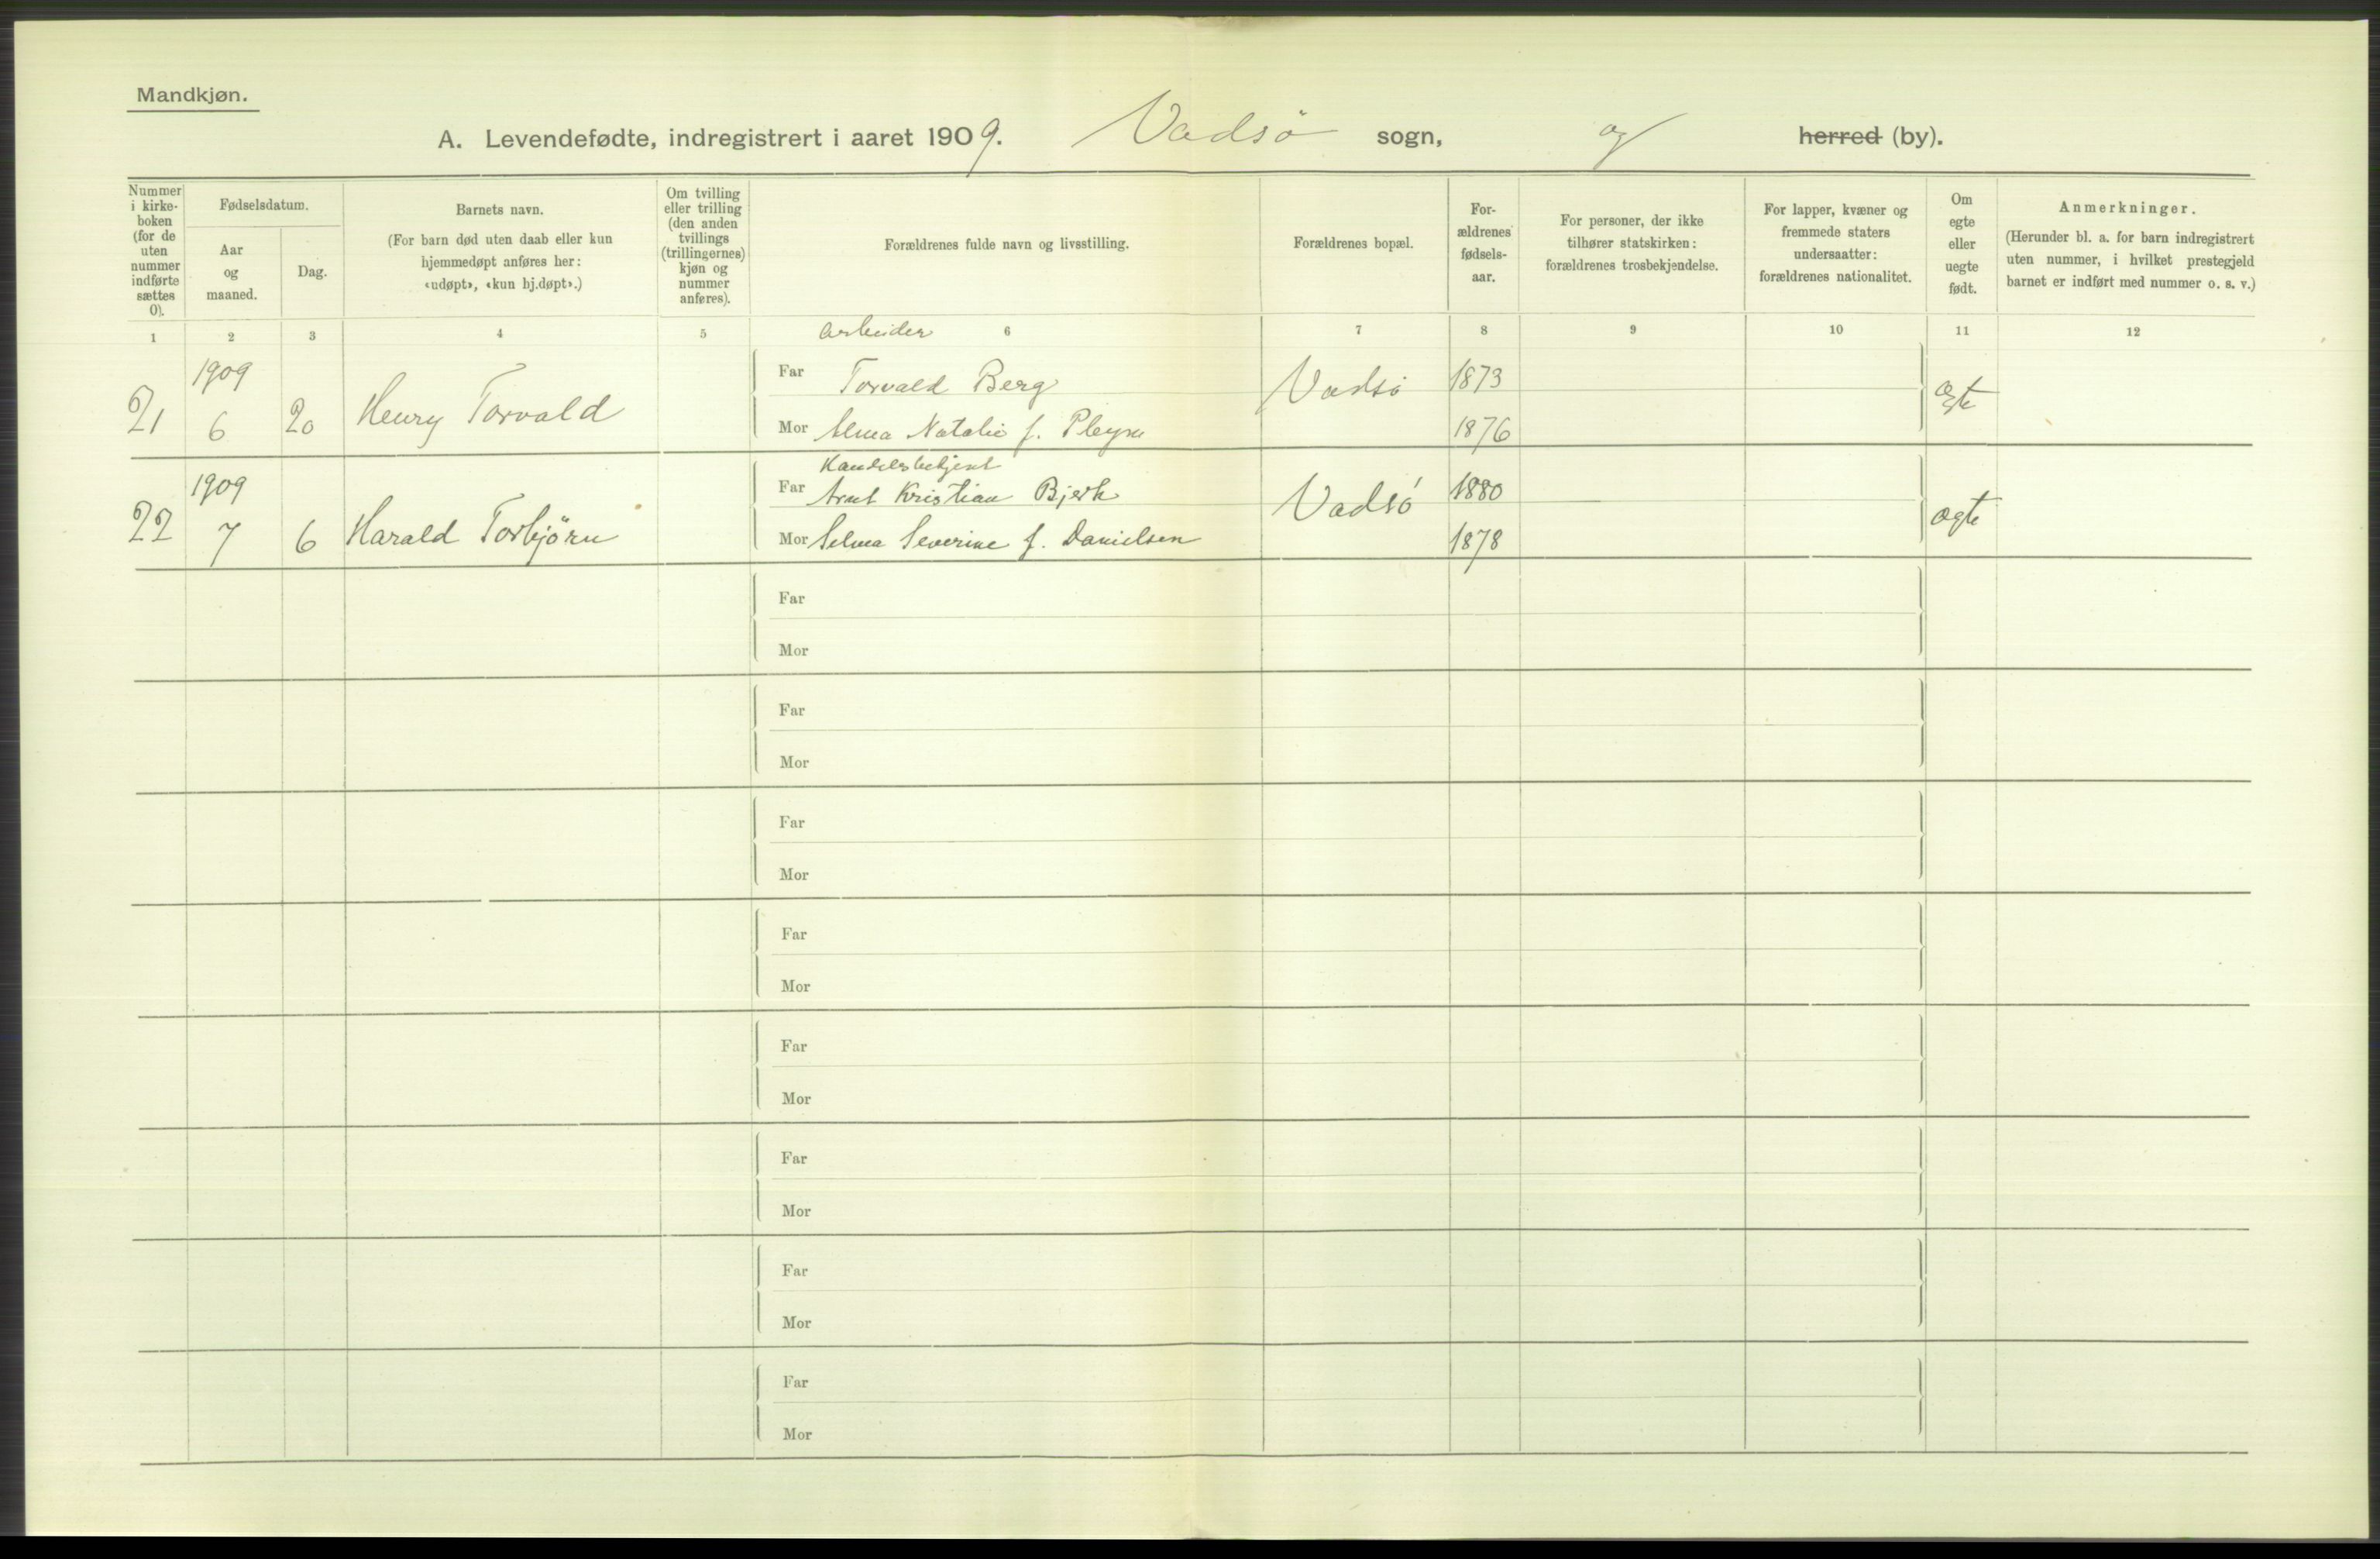 Mandkjøn.
A. Levendefødte, indregistrert i aaret 1909. Vadsö sogn, og herred (by).
Nummer i kirke-boken (for de uten nummer indførte sættes 0).
Fødselsdatum.
Aar og maaned.
Dag.
Barnets navn.
(For barn død uten daab eller kun hjemmedøpt anføres her: «udøpt», «kun hj.døpt».)
Om tvilling eller trilling (den anden tvillings (trillingernes) kjøn og nummer anføres).
Forældrenes fulde navn og livsstilling.
Forældrenes bopæl.
For-ældrenes fødsels-aar.
For personer, der ikke tilhører statskirken: forældrenes trosbekjendelse.
For lapper, kvæner og fremmede staters undersaatter: forældrenes nationalitet.
Om egte eller uegte født.
Anmerkninger.
(Herunder bl. a. for barn indregistrert uten nummer, i hvilket prestegjeld barnet er indført med nummer o. s. v.)
1 2 3 4 5 6 7 8 9 10 11 12
Arbeider
1909 Far Torvald Berg Vadsö 1873
21 6 20 Henry Torvald ægte
Mor Alma Natalie f. 1876
Handelsbetjent
1909 Far Arnt Kristian Bjerk Vadsö 1880
22 7 6 Harald Torbjörn ægte
Mor Selma Severine f. Danielsen 1878
Far
Mor
Far
Mor
Far
Mor
Far
Mor
Far
Mor
Far
Mor
Far
Mor
Far
Mor